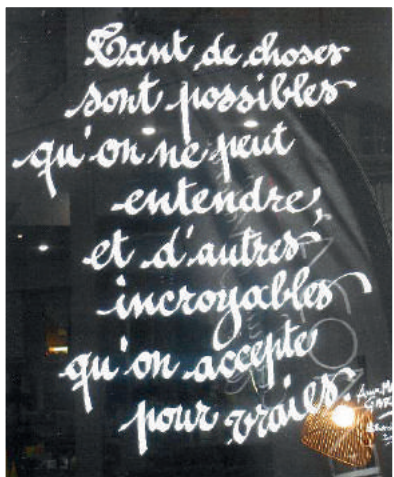 Tant de choses
sont possibles
qu'on ne peut
entendre,
et d'autres
incroyables
qu'on accepte
pour vraies.